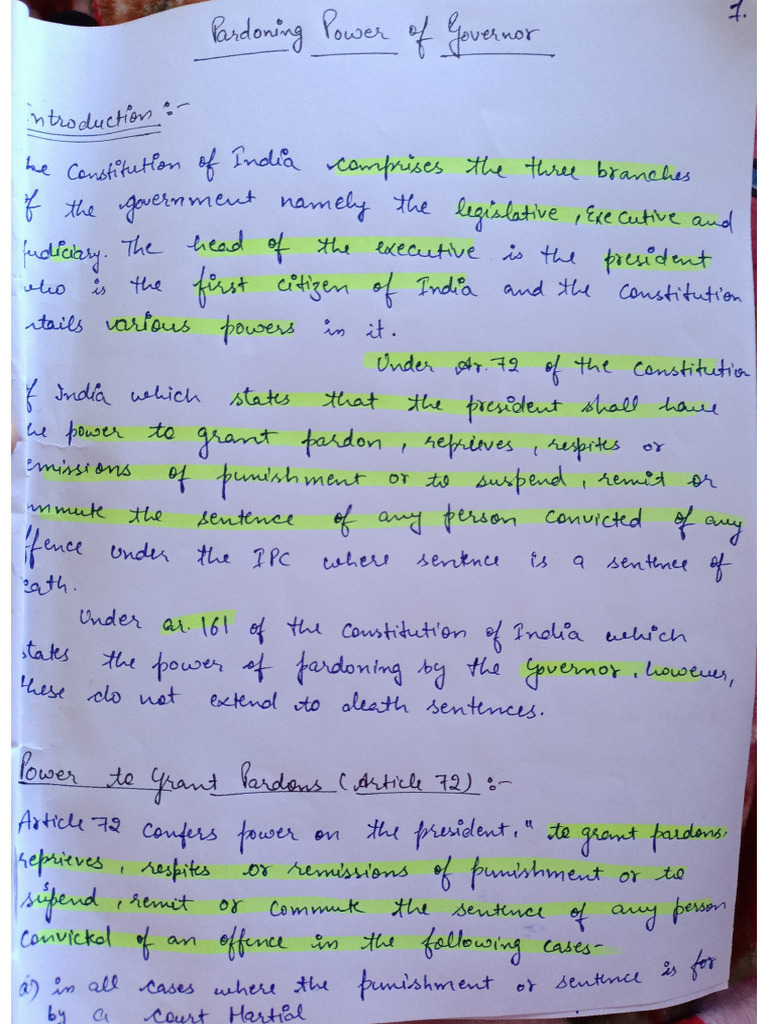 7.
Pardoning Power of Governor
introduction :-
he Constitution of India comprises the three branches
of the government namely the legislative, Executive and
judiciary. The head of the executive is the president
who is the first citizen of India and the constitution
ntails various powers in it.
Under Ar. 72 of the constitution
of India which states that the president shall have
he power to grant pardon, reprieves, respites or
emissions of punishment or to suspend, remit or
ommute the sentence of any person convicted of any
ffence under the IPC where sentence is a sentence of
eath.
Under ar. 161 of the constitution of India which
states the power of pardoning by the Governor, however,
these do not extend to death sentences.
Power to Grant Pardons (Article 72) :-
Article 72 confers power on the president, " to grant pardons,
reprieves, respites or remissions of punishment or to
suspend, remit or commute the sentence of any person
convicted of an offence in the following cases-
a) in all cases where the punishment or sentence is for
by a court Martial